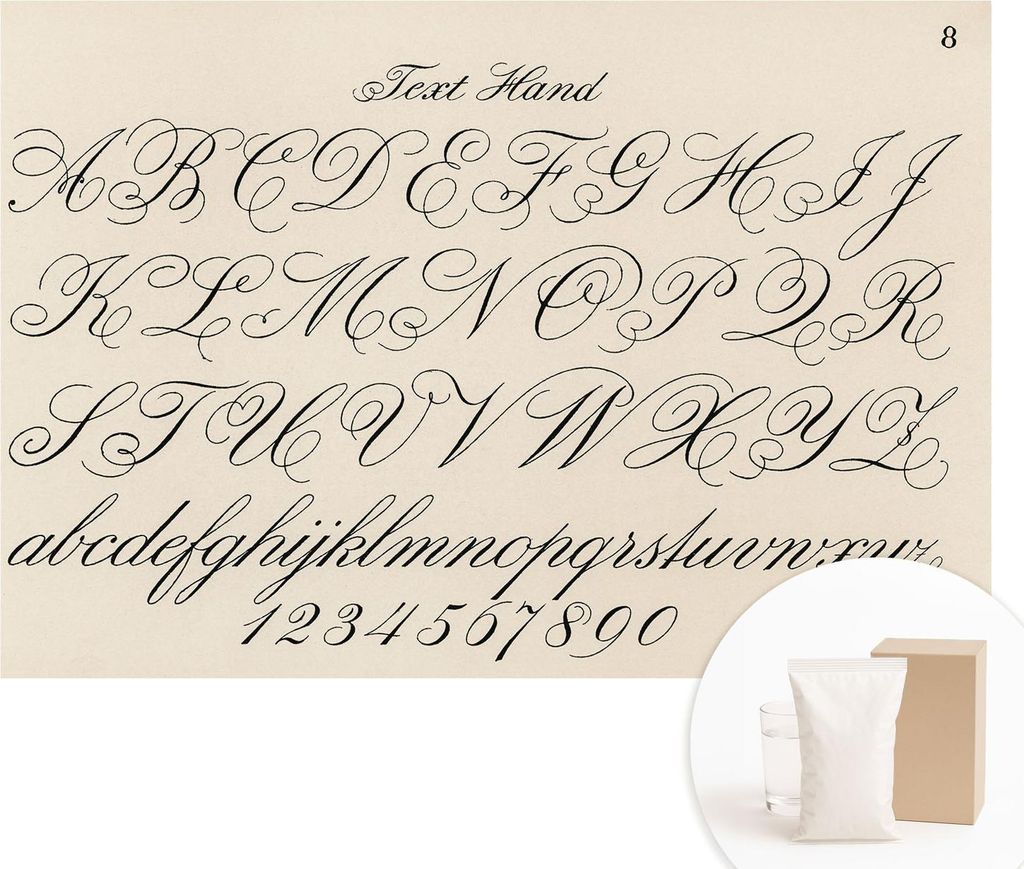 8
Text Hand
ABCDEFGHIJ
KLMNOPQR
STUVVWXYZ
abcdefghijklmnopqrstuvwxyz
1234567890